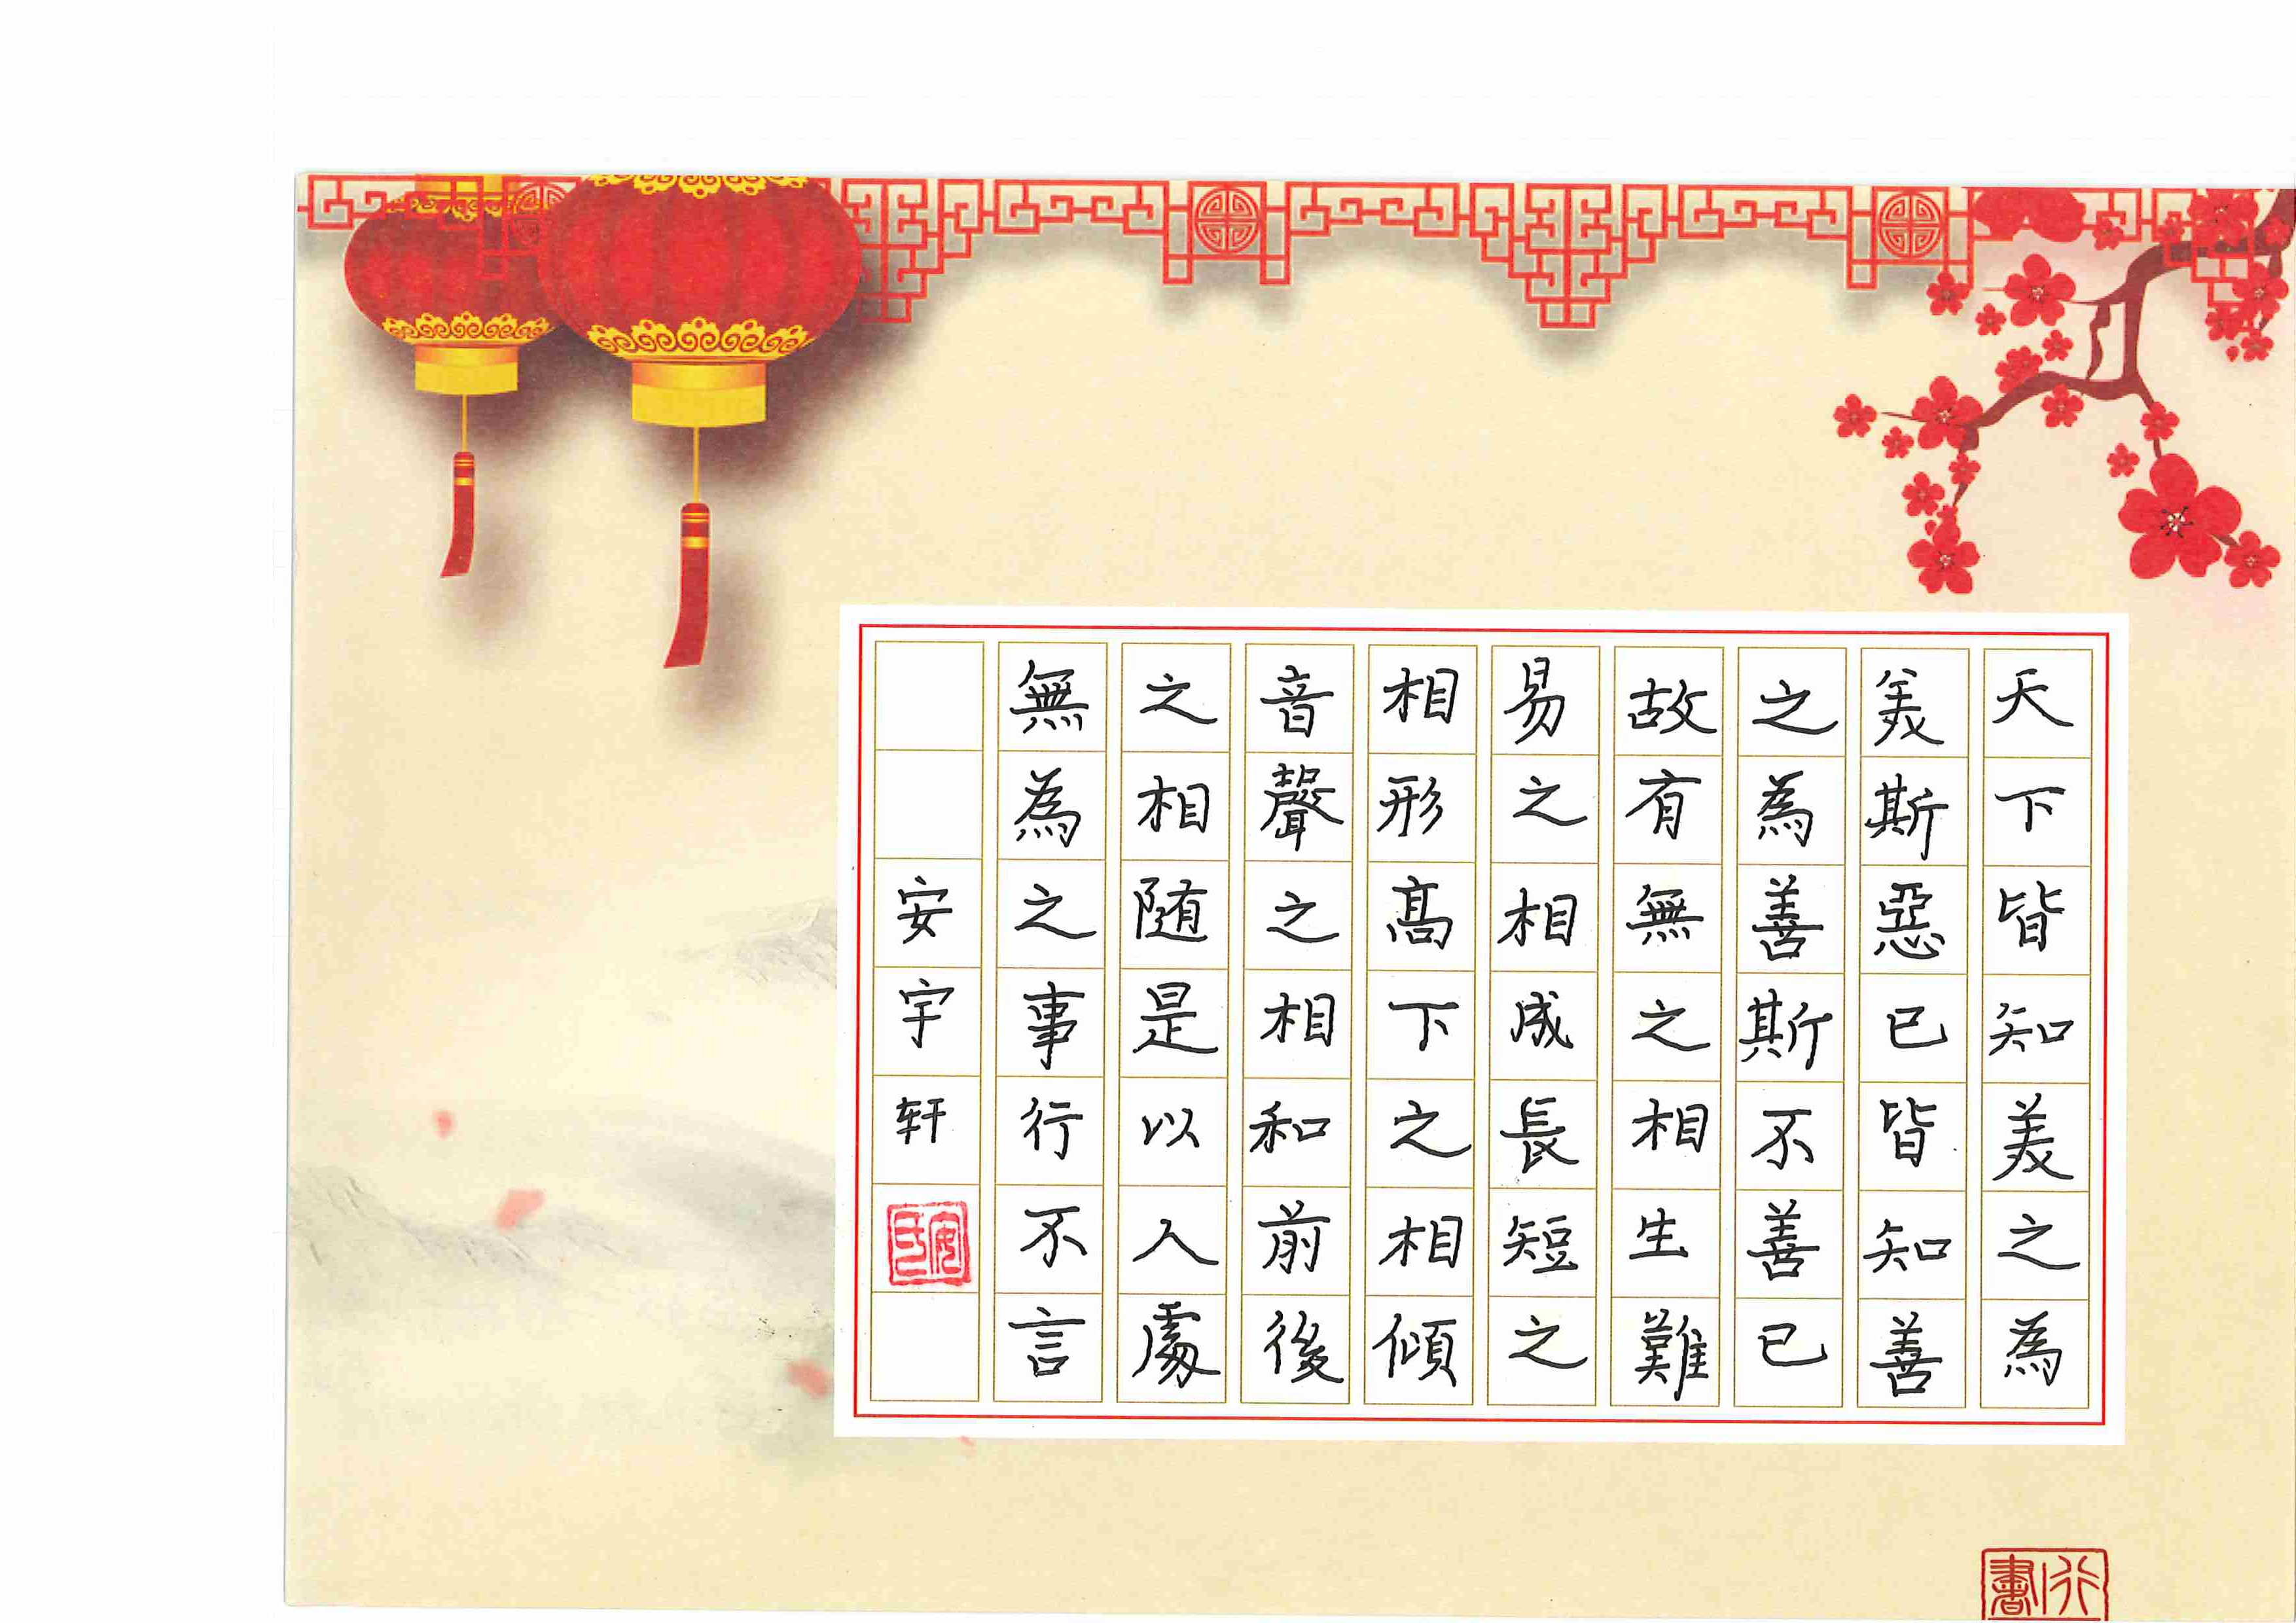 天下皆知美之為
美斯惡已皆知善
之為善斯不善已
故有無之相生難
易之相成長短之
相形髙下之相傾
音聲之相和前後
之相随是以人處
無為之事行不言
安宇轩
安印
行書